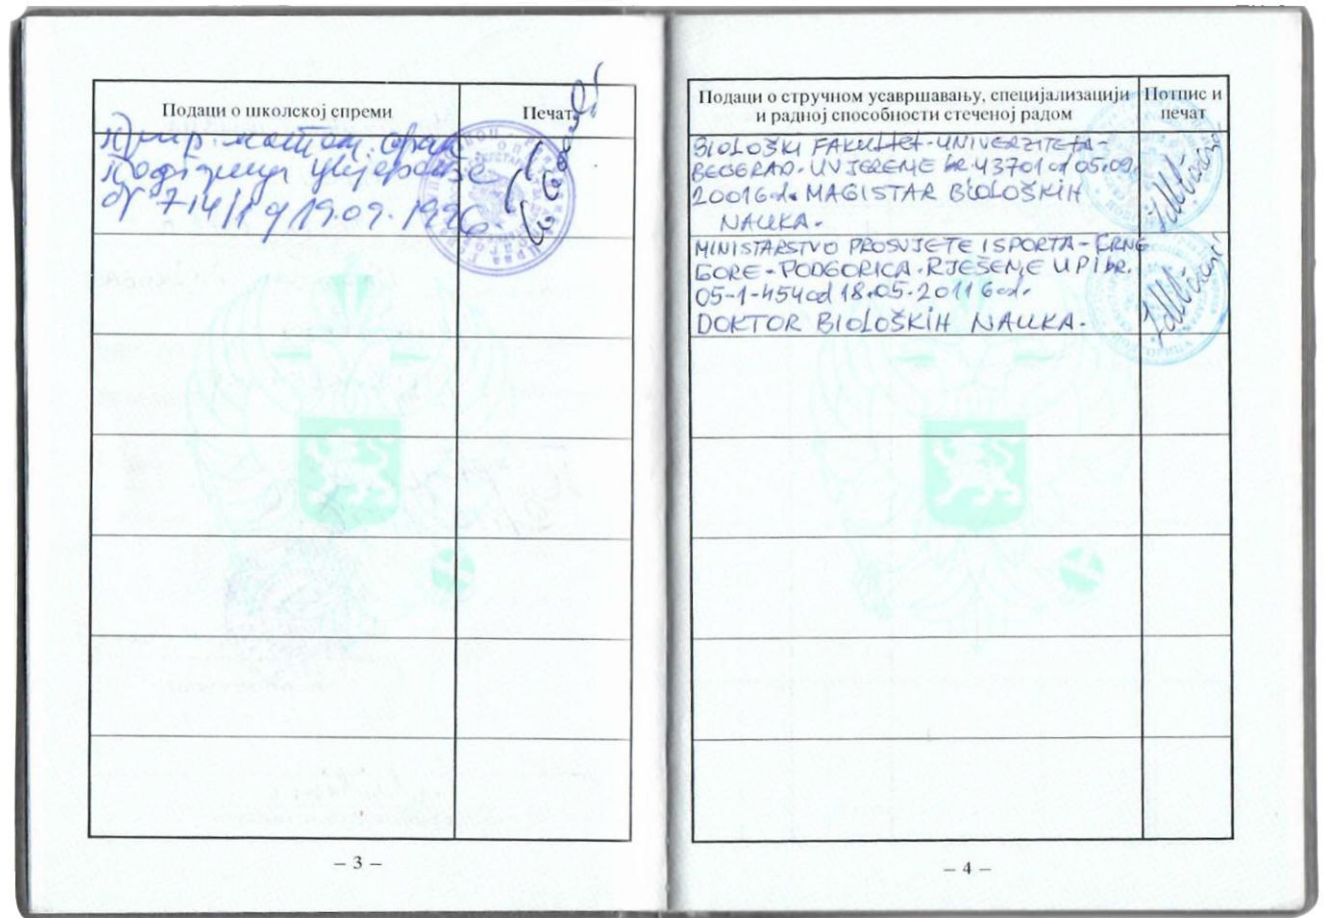 Подаци о школској спреми
Печат
Прир. матем. фак
Подгорица увјерење
бр 714/1 од 19.09.1996.
– 3 –
Подаци о стручном усавршавању, специјализацији
и радној способности стеченој радом
Потпис и
печат
BIOLOŠKI FAKULTET-UNIVERZITETA-
BEOGRAD. UVJERENJE br. 43701 od 05.09.
2001 God. MAGISTAR BIOLOŠKIH
NAUKA.
MINISTARSTVO PROSVJETE I SPORTA - CRNE
GORE - PODGORICA. RJEŠENJE UPI br.
05-1-454 od 18.05.2011 God.
DOKTOR BIOLOŠKIH NAUKA.
– 4 –